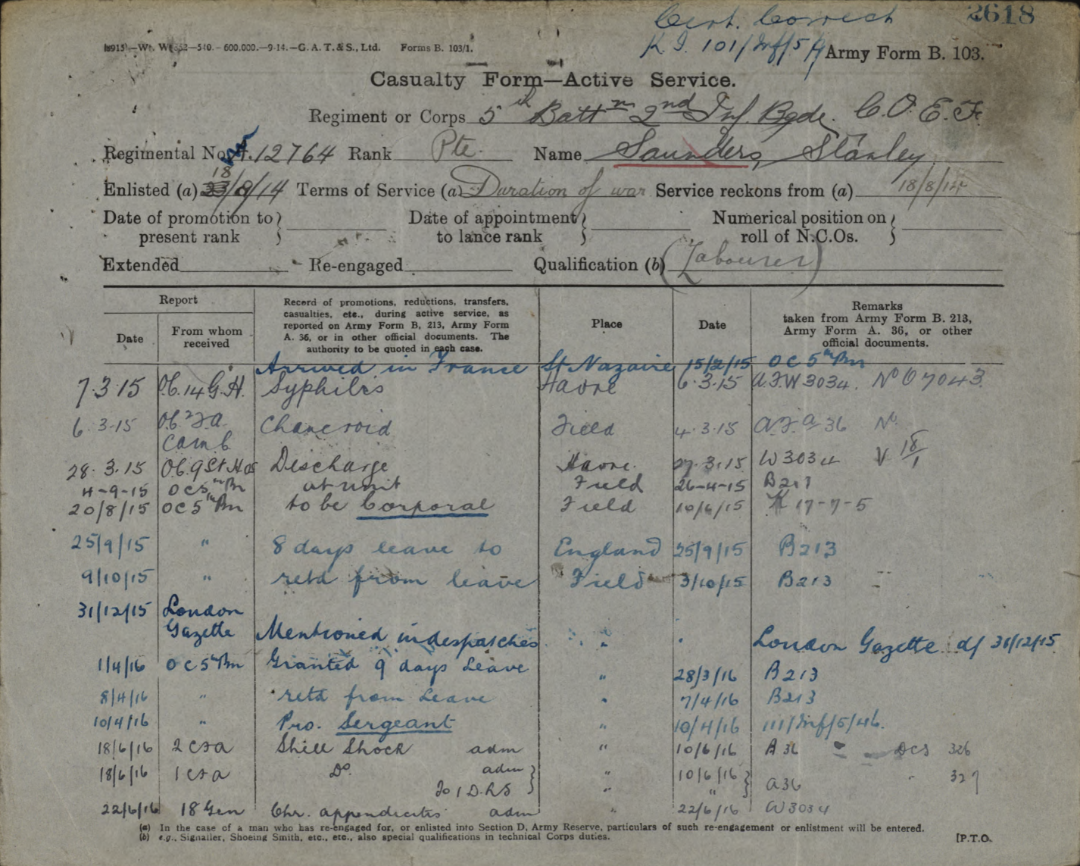 Cert. Correct 2618
(8915)—Wt. W 2—510.—600,000.—9-14.—G. A. T. & S., Ltd. Forms B. 103/1.
K.I. 101/Inf/5/ Army Form B. 103.
Casualty Form—Active Service.
Regiment or Corps 5th Battn 2nd Inf Bgde. C.O.E.F.
Regimental No. 12764 Rank Pte. Name Saunders, Stanley
18
Enlisted (a) 23/8/14 Terms of Service (a) Duration of war Service reckons from (a) 18/8/14
Date of promotion to } Date of appointment } Numerical position on }
present rank to lance rank roll of N.C.Os.
Extended Re-engaged Qualification (b) (Labourer)
Report
Date
From whom received
Record of promotions, reductions, transfers, casualties, etc., during active service, as reported on Army Form B. 213, Army Form A. 36, or in other official documents. The authority to be quoted in each case.
Place
Date
Remarks taken from Army Form B. 213, Army Form A. 36, or other official documents.
Arrived in France St Nazaire 15/2/15 OC 5th Bn
7.3.15 O.C. 14 G.H. Syphilis Havre 6.3.15 A.F.W 3034. No 07043
6.3.15 O.C. 2 F.A. Chancroid Field 4.3.15 A.F.A 36 No
Camb
28.3.15 O.C. 9 St. Hos Discharge Havre 27.3.15 W3034 V 18/1
4-9-15 OC 5th Bn at unit Field 26-4-15 B213
20/8/15 OC 5th Bn to be Corporal Field 10/6/15 17-7-5
25/9/15 " 8 days leave to England 25/9/15 B213
9/10/15 " retd from leave Field 3/10/15 B213
31/12/15 London
Gazette Mentioned in despatches " . London Gazette d/ 31/12/15
1/4/16 OC 5th Bn Granted 9 days Leave " 28/3/16 B213
8/4/16 " retd from Leave " 7/4/16 B213
10/4/16 " Pro. Sergeant " 10/4/16 111/Inf/5/46.
18/6/16 2 CFA Shell Shock adm " 10/6/16 A 36 DCS 326
18/6/16 1 CFA Do adm } " 10/6/16 } A36 " 327
To 1 DRS "
22/6/16 18 Gen Chr. appendicitis adm " 22/6/16 W3034
(a) In the case of a man who has re-engaged for, or enlisted into Section D, Army Reserve, particulars of such re-engagement or enlistment will be entered.
(b) e.g., Signaller, Shoeing Smith, etc., etc., also special qualifications in technical Corps duties. [P.T.O.